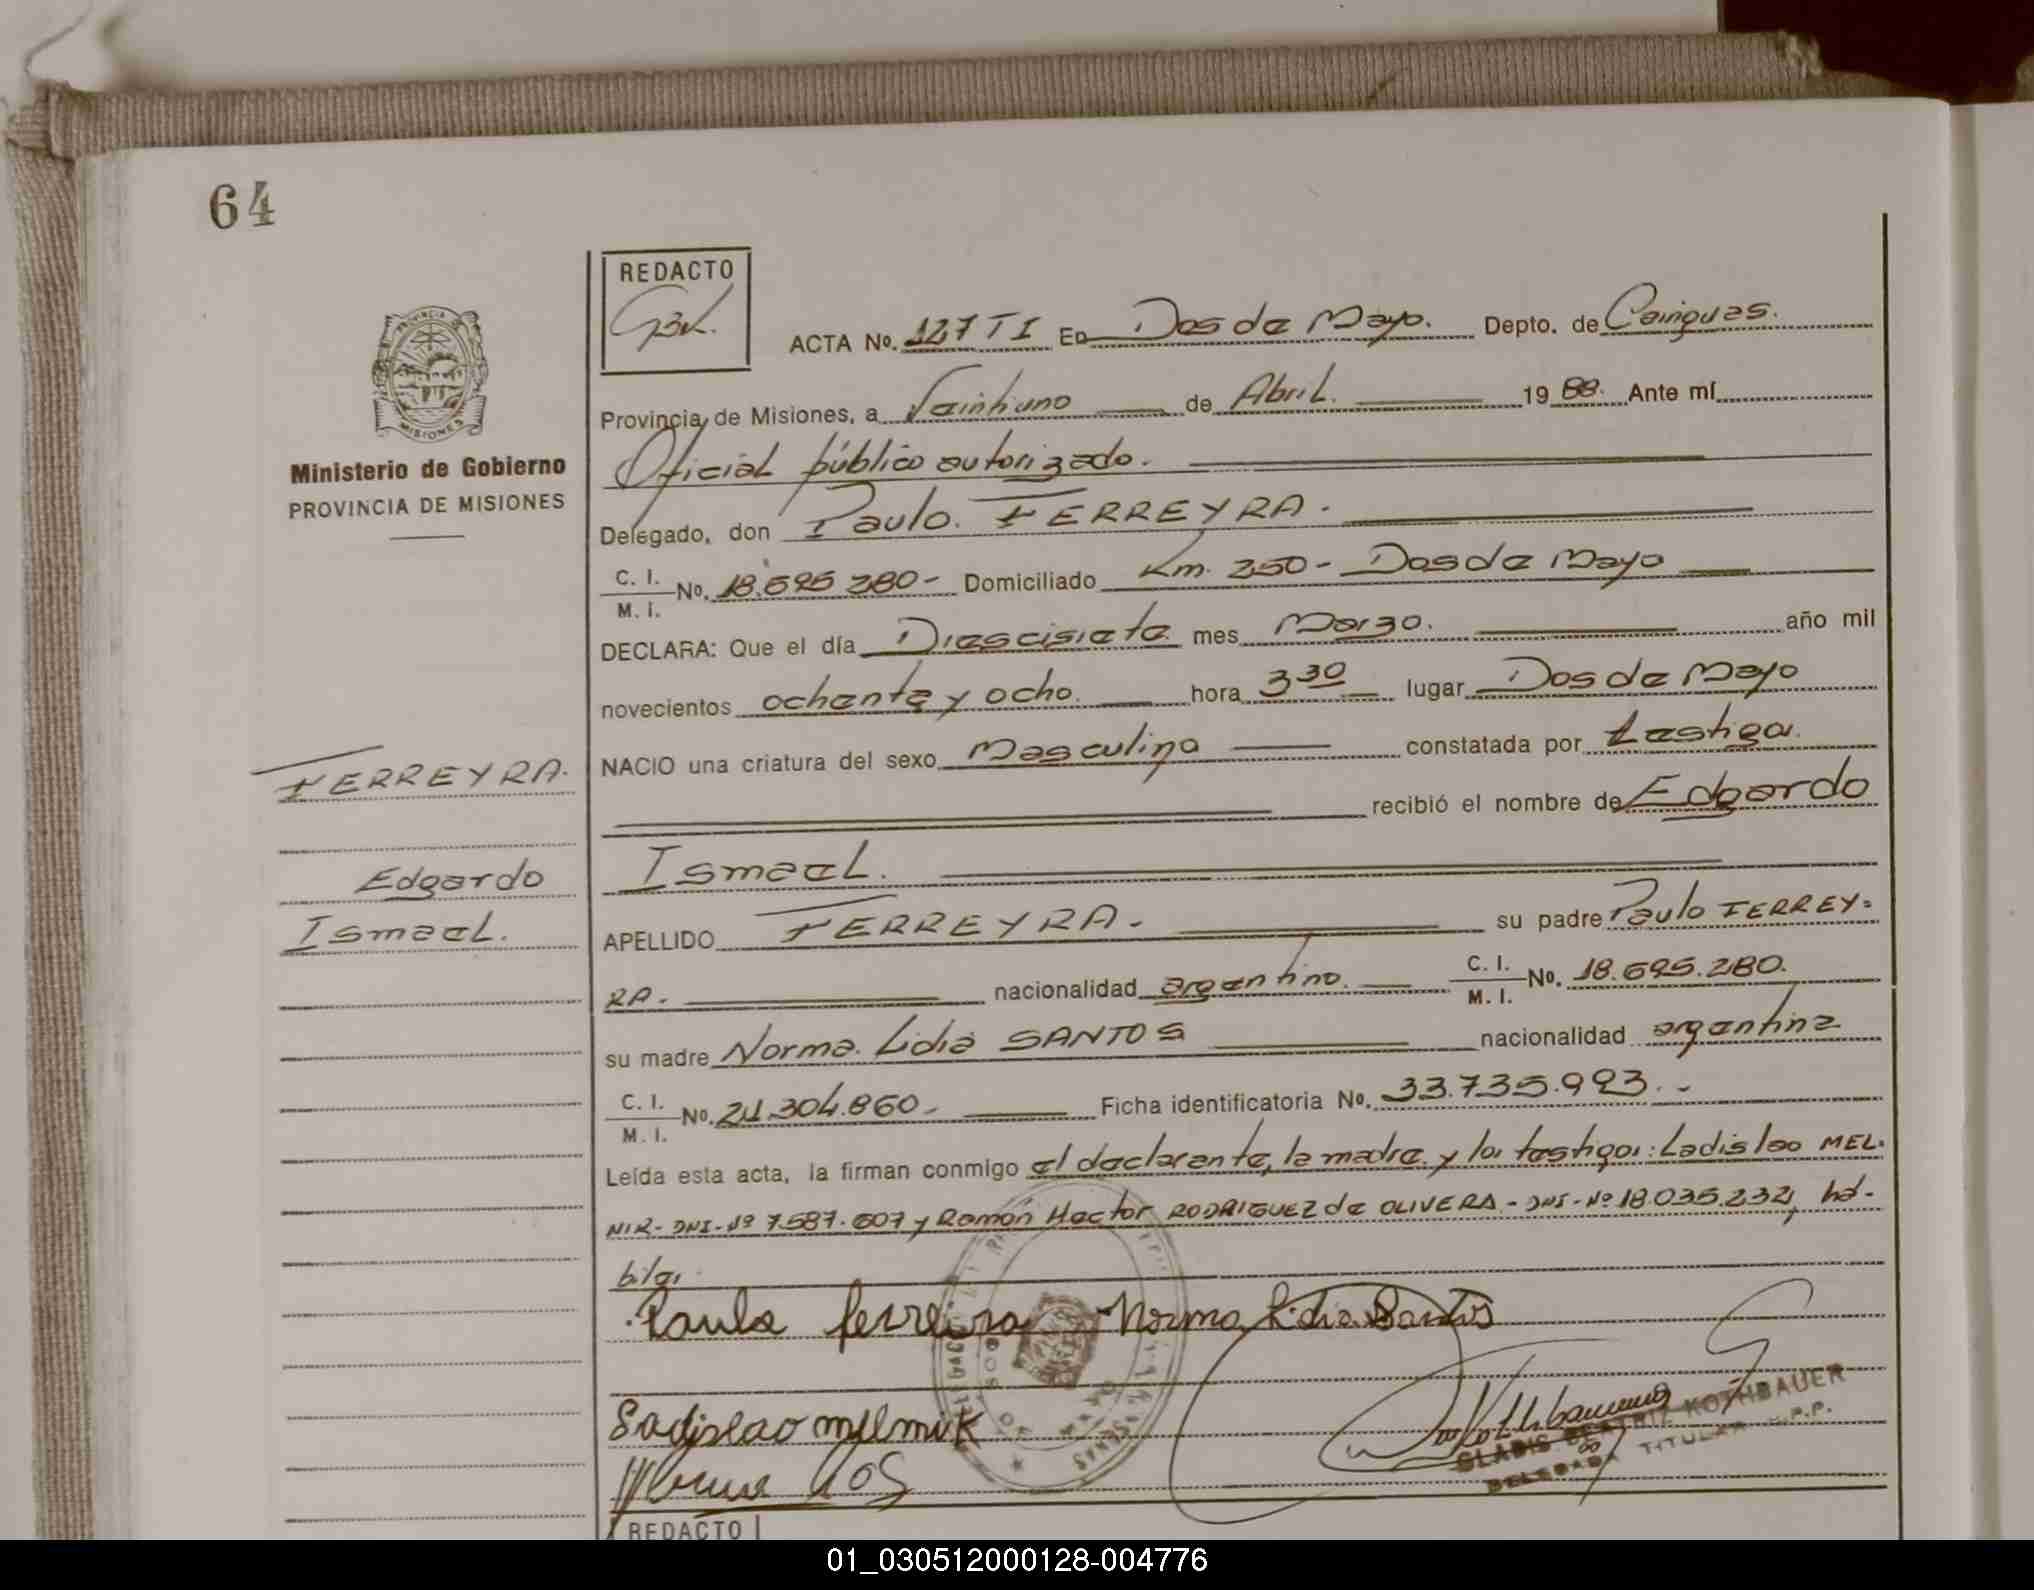 64
REDACTO
GBK.
ACTA No. 127 TI En Dos de Mayo. Depto. de Cainguas.
PROVINCIA DE
MISIONES
Ministerio de Gobierno
PROVINCIA DE MISIONES
Provincia de Misiones, a Veintiuno de Abril. 1988. Ante mí
Oficial público autorizado.
Delegado, don Paulo. FERREYRA.
C. I.
M. I. No. 18.695.280- Domiciliado Km. 250 - Dos de Mayo
DECLARA: Que el día Diescisiete mes Marzo. año mil
novecientos ochenta y ocho. hora 3 30 lugar Dos de Mayo
NACIO una criatura del sexo Masculino constatada por testigos.
recibió el nombre de Edgardo
Ismael.
APELLIDO FERREYRA. su padre Paulo FERREY=
RA. nacionalidad argentino. C. I.
M. I. No. 18.695.280.
su madre Norma. Lidia SANTOS nacionalidad argentina
C. I.
M. I. No. 24.304.860- Ficha identificatoria No. 33.735.993.-
Leída esta acta, la firman conmigo el declarante, la madre y los testigos: Ladislao MEL-
NIK- DNI-Nº 7.587.607 y Ramón Hector RODRIGUEZ de OLIVERA - DNI-Nº 18.035.232, há-
biles
FERREYRA.
Edgardo
Ismael.
Paulo ferreira Norma Lidia Santos
Ladislao melnik
GLADIS BEATRIZ KOTHBAUER
DELEGADA TITULAR R.P.P.
REDACTO
01_030512000128-004776